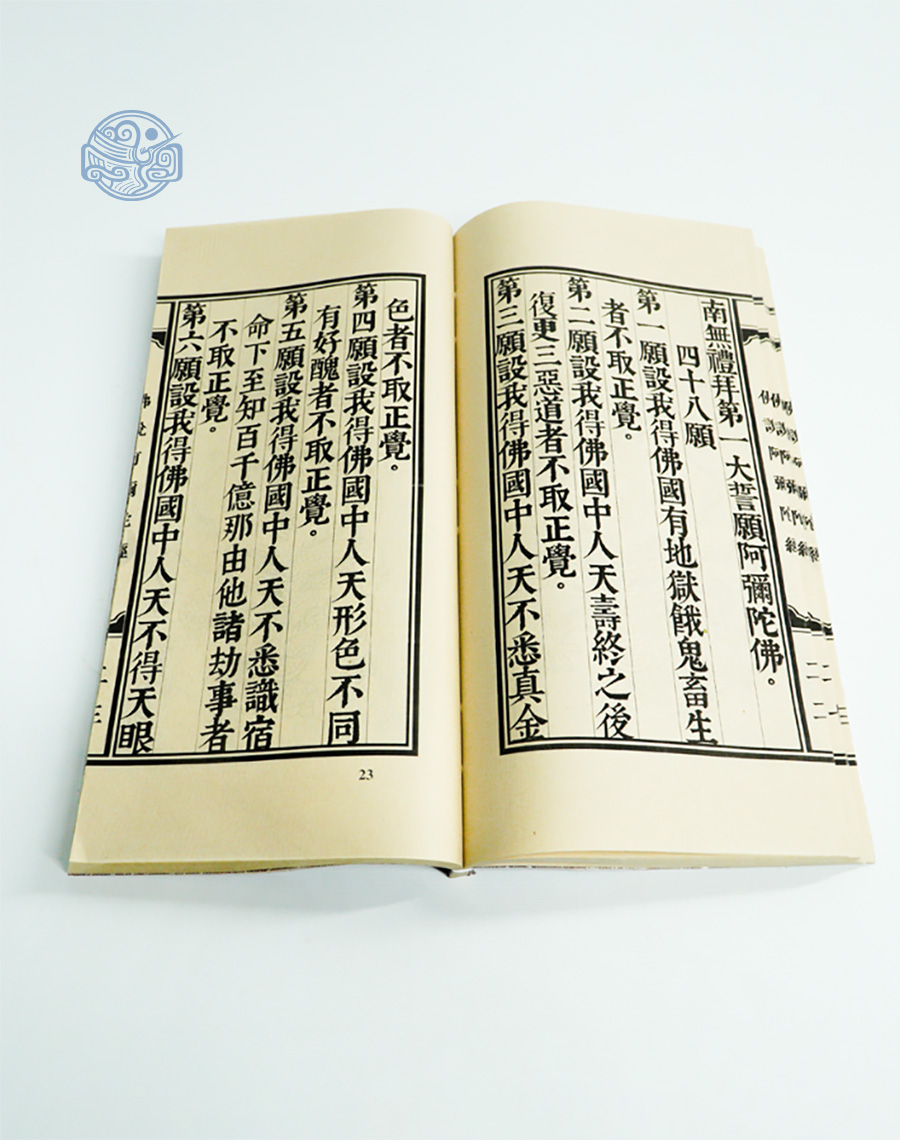 南無禮拜第一大誓願阿彌陀佛。
四十八願
第一願設我得佛國有地獄餓鬼畜生
者不取正覺。
第二願設我得佛國中人天壽終之後
復更三惡道者不取正覺。
第三願設我得佛國中人天不悉真金
色者不取正覺。
第四願設我得佛國中人天形色不同
有好醜者不取正覺。
第五願設我得佛國中人天不悉識宿
命下至知百千億那由他諸劫事者
不取正覺。
第六願設我得佛國中人天不得天眼
23